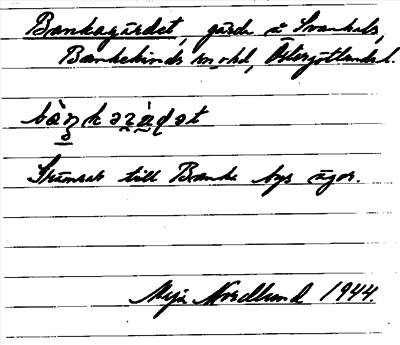 Bankagärdet, gärde å Svanhals,
Bankekinds sn o hd, Östergötlands l.
Gränsar till Banka bys ägor.
Maja Nordlund 1944.